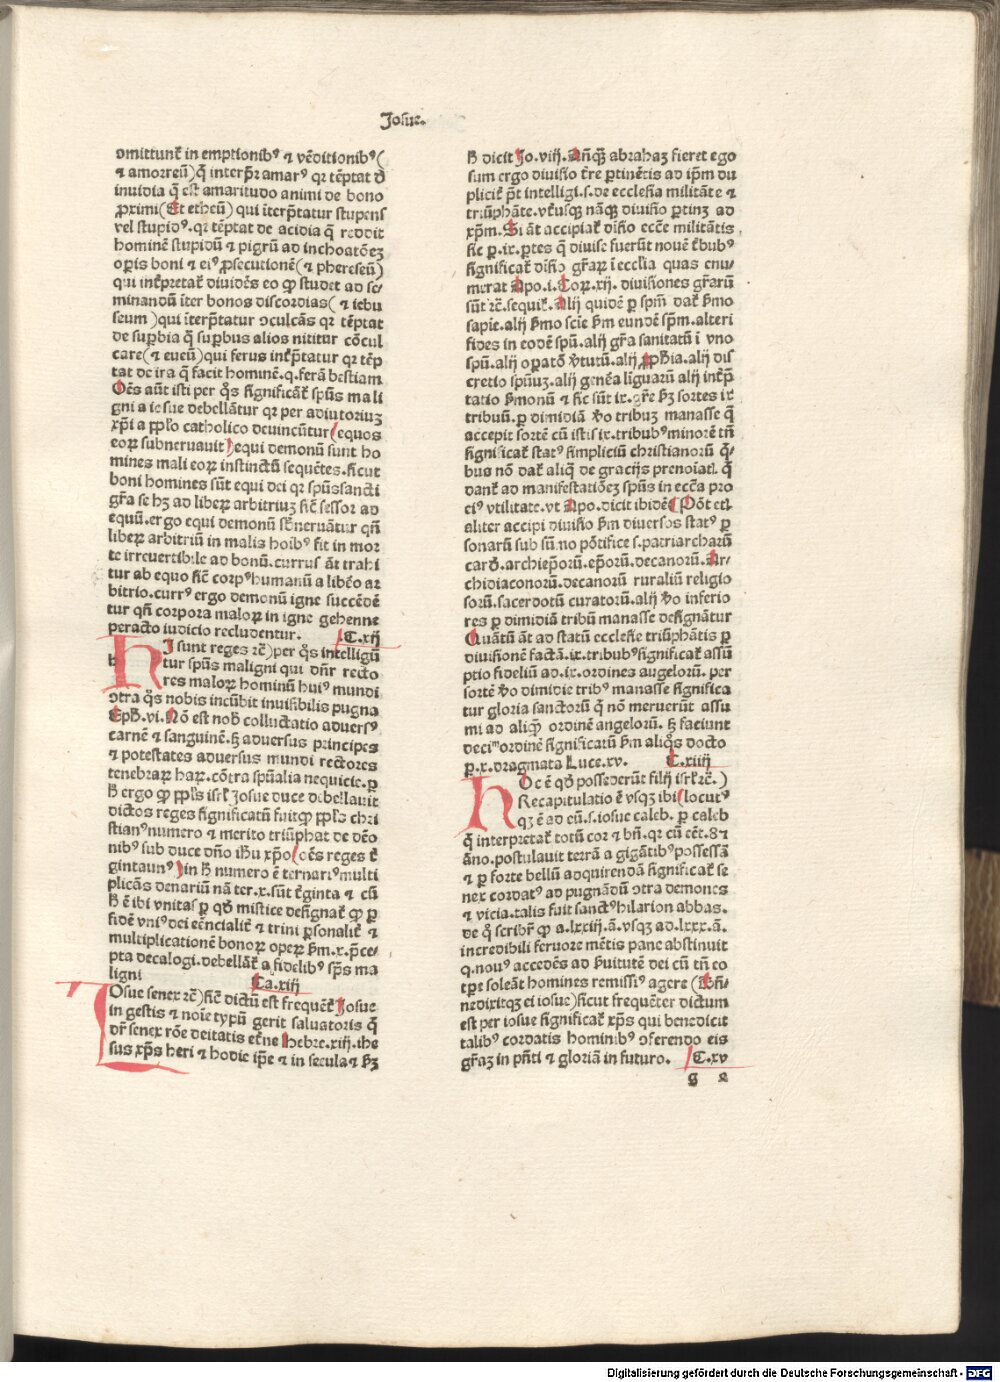 Josue.
ↄmittunt᷑ in emptionibꝰ ⁊ vēditionibꝰ(
⁊ amorreū)q̄ interp̄r amarꝰ qꝛ tēptat ð
inuidia q̄ est amaritudo animi de bono
ꝓximi(Et etheū) qui iterp̄tatur stupens
vel stupidꝰ.qꝛ tēptat de acidia q̄ reddit
hominē stupidū ⁊ pigrū ad inchoatōeȝ
oꝑis boni ⁊ eiꝰ ꝓsecutionē(⁊ phereseū)
qui int᷑pretat᷑ diuidēs eo ꝙ studet ad se⸗
minandū īter bonos discordias(⁊ iebu
seum )qui īterp̄tatur ↄculcās qꝛ tēptat
de suꝑbia q̄ suꝑbus alios nititur cōcul
care(⁊ eueū)qui ferus int᷑p̄tatur qꝛ tēp
tat de ira q̄ facit hominē.q.ferā bestiam
Oēs aūt isti per q̊s significāt᷑ spūs mali
gni a iosue debellātur qꝛ per adiutoriuȝ
xp̄i a ppl̓o catholico deuincūtur(equos
eoꝝ subneruauit)equi demonū sunt ho
mines mali eoꝝ instinctū sequētes.sicut
boni homines sūt equi dei qꝛ spūssancti
gr̄a se hȝ ad liberꝝ arbitriuȝ sic̄ sessor ad
equū.ergo equi demonū sb̄neruātur qn̄
liberꝝ arbitriū in malis hoībꝰ fit in mor
te irreuertibile ad bonū.currus āt trahi
tur ab equo sic̄ corpꝰ humanū a libēo ar
bitrio.currꝰ ergo demonū igne succēdē
tur qn̄ corpora maloꝝ in igne gehenne
peracto iudicio recludentur. .C.xij
HJ sunt reges rc̄)per q̊s intelligū
tur spūs maligni qui dn̄r recto
res maloꝝ hominū huiꝰ mundi
ↄtra q̊s nobis incūbit inuisibilis pugna
Eph̄.vi.Nō est nob̄ colluctatio aduersꝰ
carnē ⁊ sanguinē.ß aduersus principes
⁊ potestates aduersus mundi rectores
tenebraꝝ haꝝ.cōtra spūalia nequicie.ꝑ
h̄ ergo ꝙ ppl̓s isrl̓ Josue duce debellauit
dictos reges significatū fuit ꝙ ppl̓s chri
stianꝰ numero ⁊ merito triūphat de dēo
nibꝰ sub duce dn̄o ihu xp̄o(oēs reges t᷑
gintaunꝰ)in h̄ numero ē ternariꝰ multi
plicās denariū nā ter.x.sūt t᷑ginta ⁊ cū
h̄ ē ibi vnitas ꝑ qð mistice designat᷑ ꝙ ꝑ
fidē vniꝰ dei eēncialit᷑ ⁊ trini ꝑsonalit᷑ ⁊
multiplicationē bonoꝝ opeꝝ ẜm.x.p̄ce⸗
pta decalogi.debellāt᷑ a fidelibꝰ sp̄s ma
ligni Ca.xiij
JOsue senex rc̄)sic̄ dictū est frequēt᷑ Josue
in gestis ⁊ noīe typū gerit saluatoris q̄
dr̄ senex rōe deitatis et᷑ne Hebre.xiij.ihe
sus xp̄s heri ⁊ hodie ip̄e ⁊ in secula ⁊ ẜȝ
h̄ dicit Jo.viij.Anq̄ꝫ abrahaȝ fieret ego
sum ergo diuisio t᷑re ꝑtinētis ad ip̄m du
plicit᷑ p̄t intelligi.s.de ecclesia militāte ⁊
triūphāte.vt᷑usqꝫ nāqꝫ diuisio ꝑtinȝ ad
xp̄m.Si āt accipiat᷑ diīsio ecc̄e militātis
sic ꝑ.ix.ꝑtes q̄ diuise fuerūt nouē t᷑bubꝰ
significat᷑ diīsio gr̄aꝝ ī ecclīa quas enu⸗
merat Apo.i.Coꝝ.xij.diuisiones gr̄arū
sūt rc̄.sequit᷑.Alij quidē ꝑ spm̄ dat᷑ ẜmo
sapīe.alij ẜmo scīe ẜm eundē sp̄m.alteri
fides in eodē spū.alij gr̄a sanitatū ī vno
spū.alij oꝑatō v̄tutū.alij ꝓph̄ia.alij dis
cretio spūuȝ.alij genēa līguarū alij int᷑p̄
tatio ẜmonū ⁊ sic sūt ix.gr̄e ẜȝ sortes ix
tribuū.ꝑ dimidiā v̊o tribuȝ manasse q̄
accepit sortē cū istis ix.tribubꝰ minorē tn̄
significat᷑ statꝰ simpliciū christianorū q̊⸗
bus nō dat᷑ aliq̄ de gracijs prenoiatꝭ q̄
dant᷑ ad manifestatiōeȝ spūs in ecc̄a pro
eiꝰ vtilitate.vt Apo.dicit ibidē(Pōt etꝭ
aliter accipi diuisio ẜm diuersos statꝰ ꝑ
sonarū sub sūmo pōtifice s.patriarcharū
card̄.archiep̄orū.ep̄orū.decanorū.Ar⸗
chidiaconorū.decanorū ruraliū religio
sorū.sacerdotū curatorū.alij v̊o inferio
res ꝑ dimidiā tribū manasse designātur
Quātū āt ad statū ecclesie triūphātis ꝑ
diuisionē factā.ix.tribubꝰ significat᷑ assū
ptio fideliū ad.ix.ordines angelorū.per
sortē v̊o dimidie tribꝰ manasse significa
tur gloria sanctorū q̄ nō meruerūt assu
mi ad aliqꝫ ordinē angelorū.ß faciunt
decimū ordinē significatū ẜm aliq̊s docto
ꝑ.x.dragmata Luce.xv. C.xiiij
HOc ē qð possederūt filij isrl̓ rc̄.)
Recapitulatio ē vsqȝ ibi(locutꝰ
qȝ ē ad eū.s.iosue caleb.ꝑ caleb
q̄ interpretat᷑ totū cor ⁊ bn̄.qꝛ cū eēt.8⁊
āno.postulauit terrā a gigātibꝰ possessā
⁊ ꝑ forte bellū adquirendā significat᷑ se
nex cordatꝰ ad pugnādū ↄtra demones
⁊ vicia.talis fuit sanctꝰ hilarion abbas.
de q̊ scribr̄ ꝙ a.lxiij.ā.vsqȝ ad.lxxx.ā.
incredibili feruore mētis pane abstinuit
q.nouꝰ accedēs ad ẜuitutē dei cū tn̄ eo
tꝑe soleāt homines remissiꝰ agere (Bn̄⸗
nedixitqȝ ei iosue)sicut frequēter dictum
est per iosue significat᷑ xp̄s qui benedicit
talibꝰ cordatis hominibꝰ ↄferendo eis
gr̄aȝ in pn̄ti ⁊ gloriā in futuro. C.xv
g ⁊
Digitalisierung gefördert durch die Deutsche Forschungsgemeinschaft - DFG